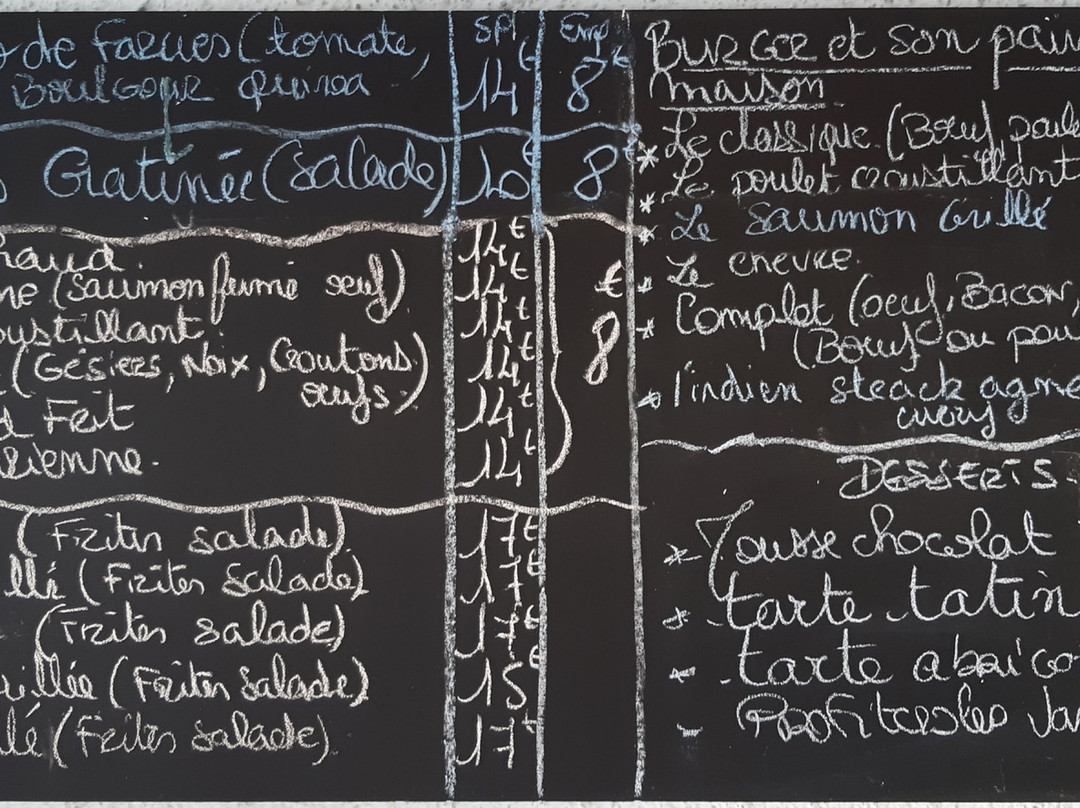 de Farcies (tomate,
Boulgour Quinoa
Gratinée (salade)
(saumon fumé œuf)
(Gésiers, Noix, Croutons
œufs.)
(Frites salade)
(Frites Salade)
(Frites salade)
(Frites Salade)
(Frites Salade)
SPl Emp
14€ 8€
10€ 8€
14€
14€ €
14€ 8
14€
14€
14€
17€
17€
17€
15€
17€
Burger et son pain
maison
* Le classique (Bœuf, poule
* Le poulet croustillant
* Le Saumon Grillé
* Le chevre.
* Complet (oeuf, Bacon,
(Bœuf ou pou
* l'indien steack agne
curry
DESSERTS.
* Mousse chocolat
* tarte tatin
* tarte abrico
- Profiteroles Van